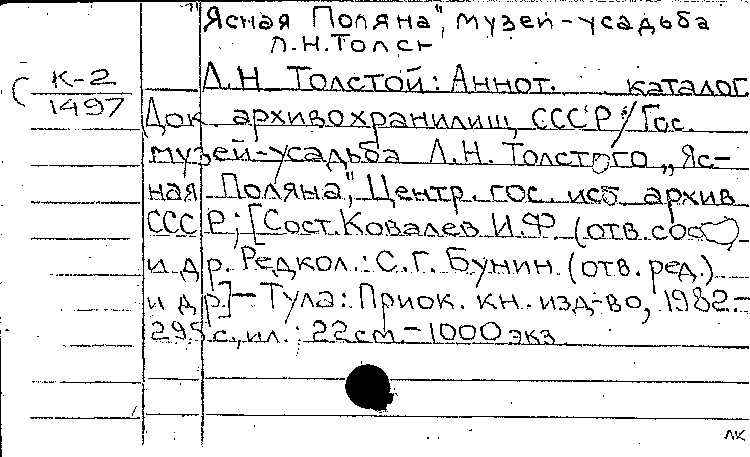 Ясная Поляна", музей-усадьба
Л.Н.Толст
К-2
1497
Л.Н Толстой: Аннот. каталог
Док архивохранилищ СССР / Гос.
музей-усадьба Л.Н. Толстого „Яс-
ная Поляна", Центр. гос. ист архив
СССР; [Сост. Ковалев И.Ф. (отв. сост)
и др. Редкол.: С.Г. Бунин (отв. ред.)
и др.] – Тула: Приок. кн. изд-во, 1982.-
295 с., ил.; 22 см. – 1000 экз
ЛК